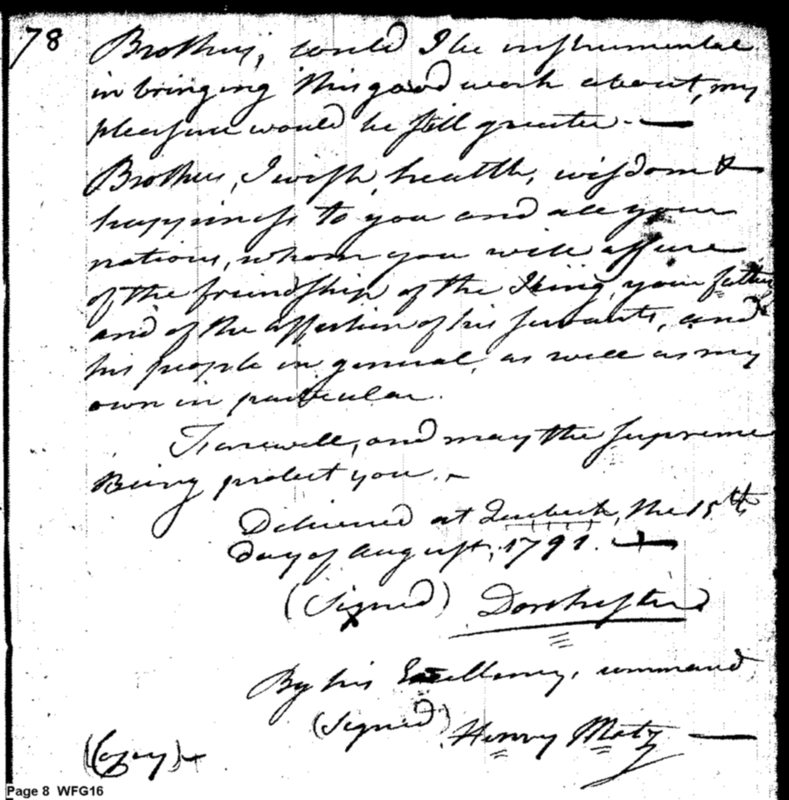 78
Brothers, could I be instrumental
in bringing this good work about, my
pleasure would be still greater. —
Brothers, I wish, health, wisdom &
happiness to you and all your
nations, whom you will assure
of the friendship of the King, your father,
and of the affection of his servants, and
his people in general, as well as my
own in particular.
Farewell, and may the Supreme
Being protect you. —
Delivered at Quebeck, the 15th
day of August, 1791. —
(Signed) Dorchester
By his Excellency, command
(Signed) Henry Motz —
(Copy)
Page 8 WFG16